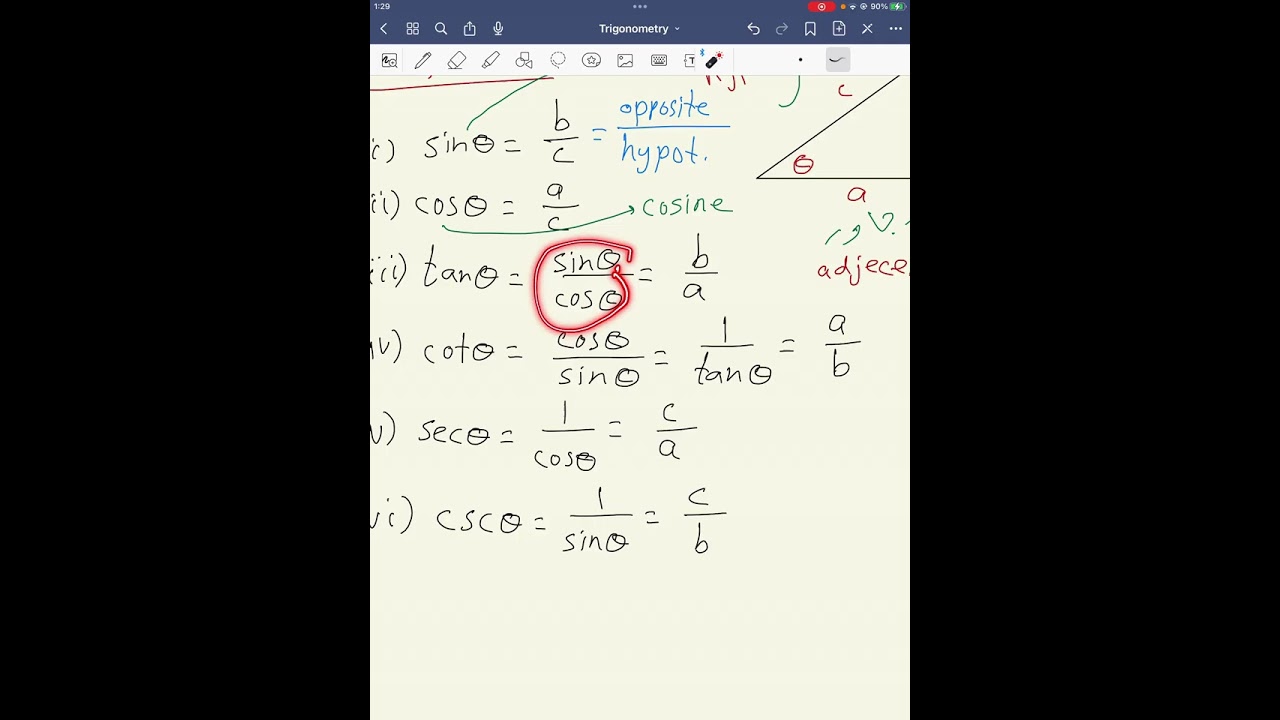 1:29
90%
Trigonometry
c
i) sinθ = b/c = opposite/hypot.
θ
ii) cosθ = a/c → cosine
a
iii) tanθ = sinθ/cosθ = b/a
adjece
iv) cotθ = cosθ/sinθ = 1/tanθ = a/b
v) secθ = 1/cosθ = c/a
vi) cscθ = 1/sinθ = c/b